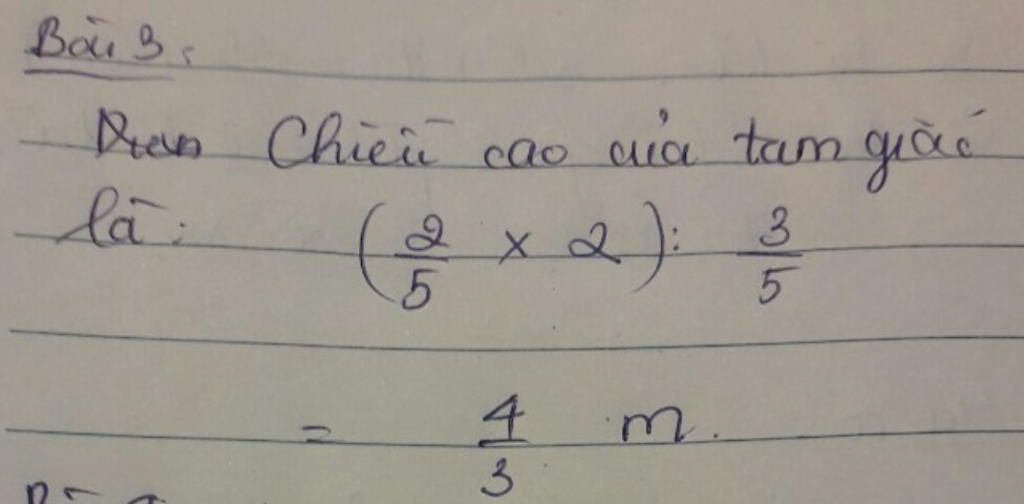 Bài 3:
Chiều cao của tam giác
là: (2/5 x 2): 3/5
= 4/3 m.